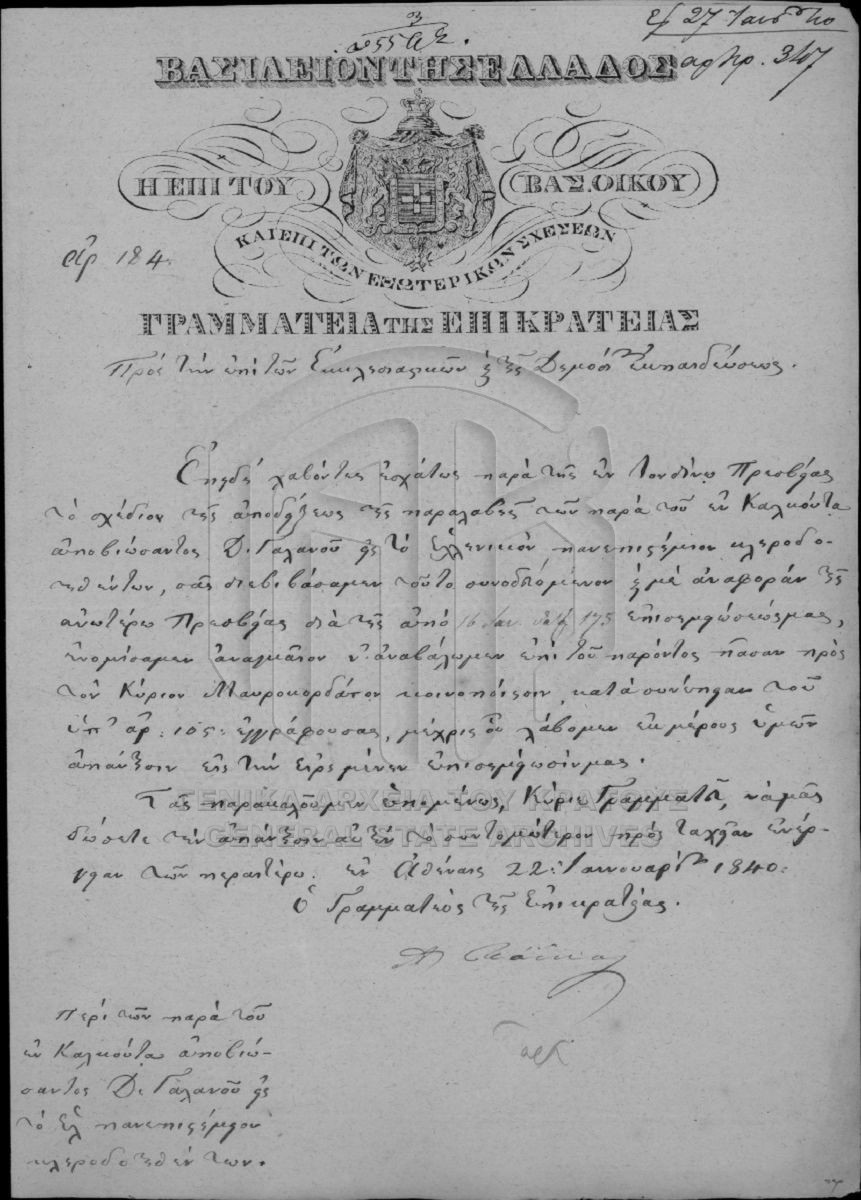 27 Ιαν. 40
αρ πρ. 3107
ΒΑΣΙΛΕΙΟΝ ΤΗΣ ΕΛΛΑΔΟΣ
Η ΕΠΙ ΤΟΥ ΒΑΣ. ΟΙΚΟΥ
ΚΑΙ ΕΠΙ ΤΩΝ ΕΞΩΤΕΡΙΚΩΝ ΣΧΕΣΕΩΝ
ἀρ 184.
ΓΡΑΜΜΑΤΕΙΑ ΤΗΣ ΕΠΙΚΡΑΤΕΙΑΣ
Πρὸς τὴν ἐπὶ τῶν Ἐκκλησιαστικῶν καὶ τῆς Δημοσ. Ἐκπαιδεύσεως.
Ἐπειδὴ λαβόντες ἐσχάτως παρὰ τῆς ἐν Λονδίνῳ Πρεσβείας
τὸ σχέδιον τῆς ἀποδείξεως τῆς παραλαβῆς τῶν παρὰ τοῦ ἐν Καλκούτᾳ
ἀποβιώσαντος Δ. Γαλανοῦ εἰς τὸ Ἑλληνικὸν πανεπιστήμιον κληροδο-
τηθέντων, σᾶς διεβιβάσαμεν τοῦτο συνοδευόμενον καὶ μὲ ἀναφορὰν τῆς
ἀνωτέρω Πρεσβείας διὰ τῆς ἀπὸ 16 Ἰαν. 175 ἐπισημειώσεώς μας,
ἐνομίσαμεν ἀναγκαῖον ν' ἀναβάλωμεν ἐπὶ τοῦ παρόντος πᾶσαν πρὸς
τὸν Κύριον Μαυροκορδάτον κοινοποίησιν, κατὰ συνέπειαν τοῦ
ὑπ' ἀρ. 105. ἐγγράφου σας, μέχρις οὗ λάβομεν ἐκ μέρους ὑμῶν
ἀπάντησιν εἰς τὴν εἰρημένην ἐπισημείωσίν μας.
Σᾶς παρακαλοῦμεν ἑπομένως, Κύριε Γραμματεῦ, νὰ μᾶς
δώσετε τὴν ἀπάντησιν αὐτὴν τὸ συντομώτερον πρὸς ταχεῖαν ἐνέρ-
γειαν τῶν περαιτέρω. ἐν Ἀθήναις 22 Ἰαννουαρίου 1840.
Ὁ Γραμματεὺς τῆς Ἐπικρατείας.
Περὶ τῶν παρὰ τοῦ
ἐν Καλκούτᾳ ἀποβιώ-
σαντος Δ. Γαλανοῦ εἰς
τὸ Ἑλ πανεπιστήμιον
κληροδοτηθέντων.
ΓΕΝΙΚΑ ΑΡΧΕΙΑ ΤΟΥ ΚΡΑΤΟΥΣ
GENERAL STATE ARCHIVES